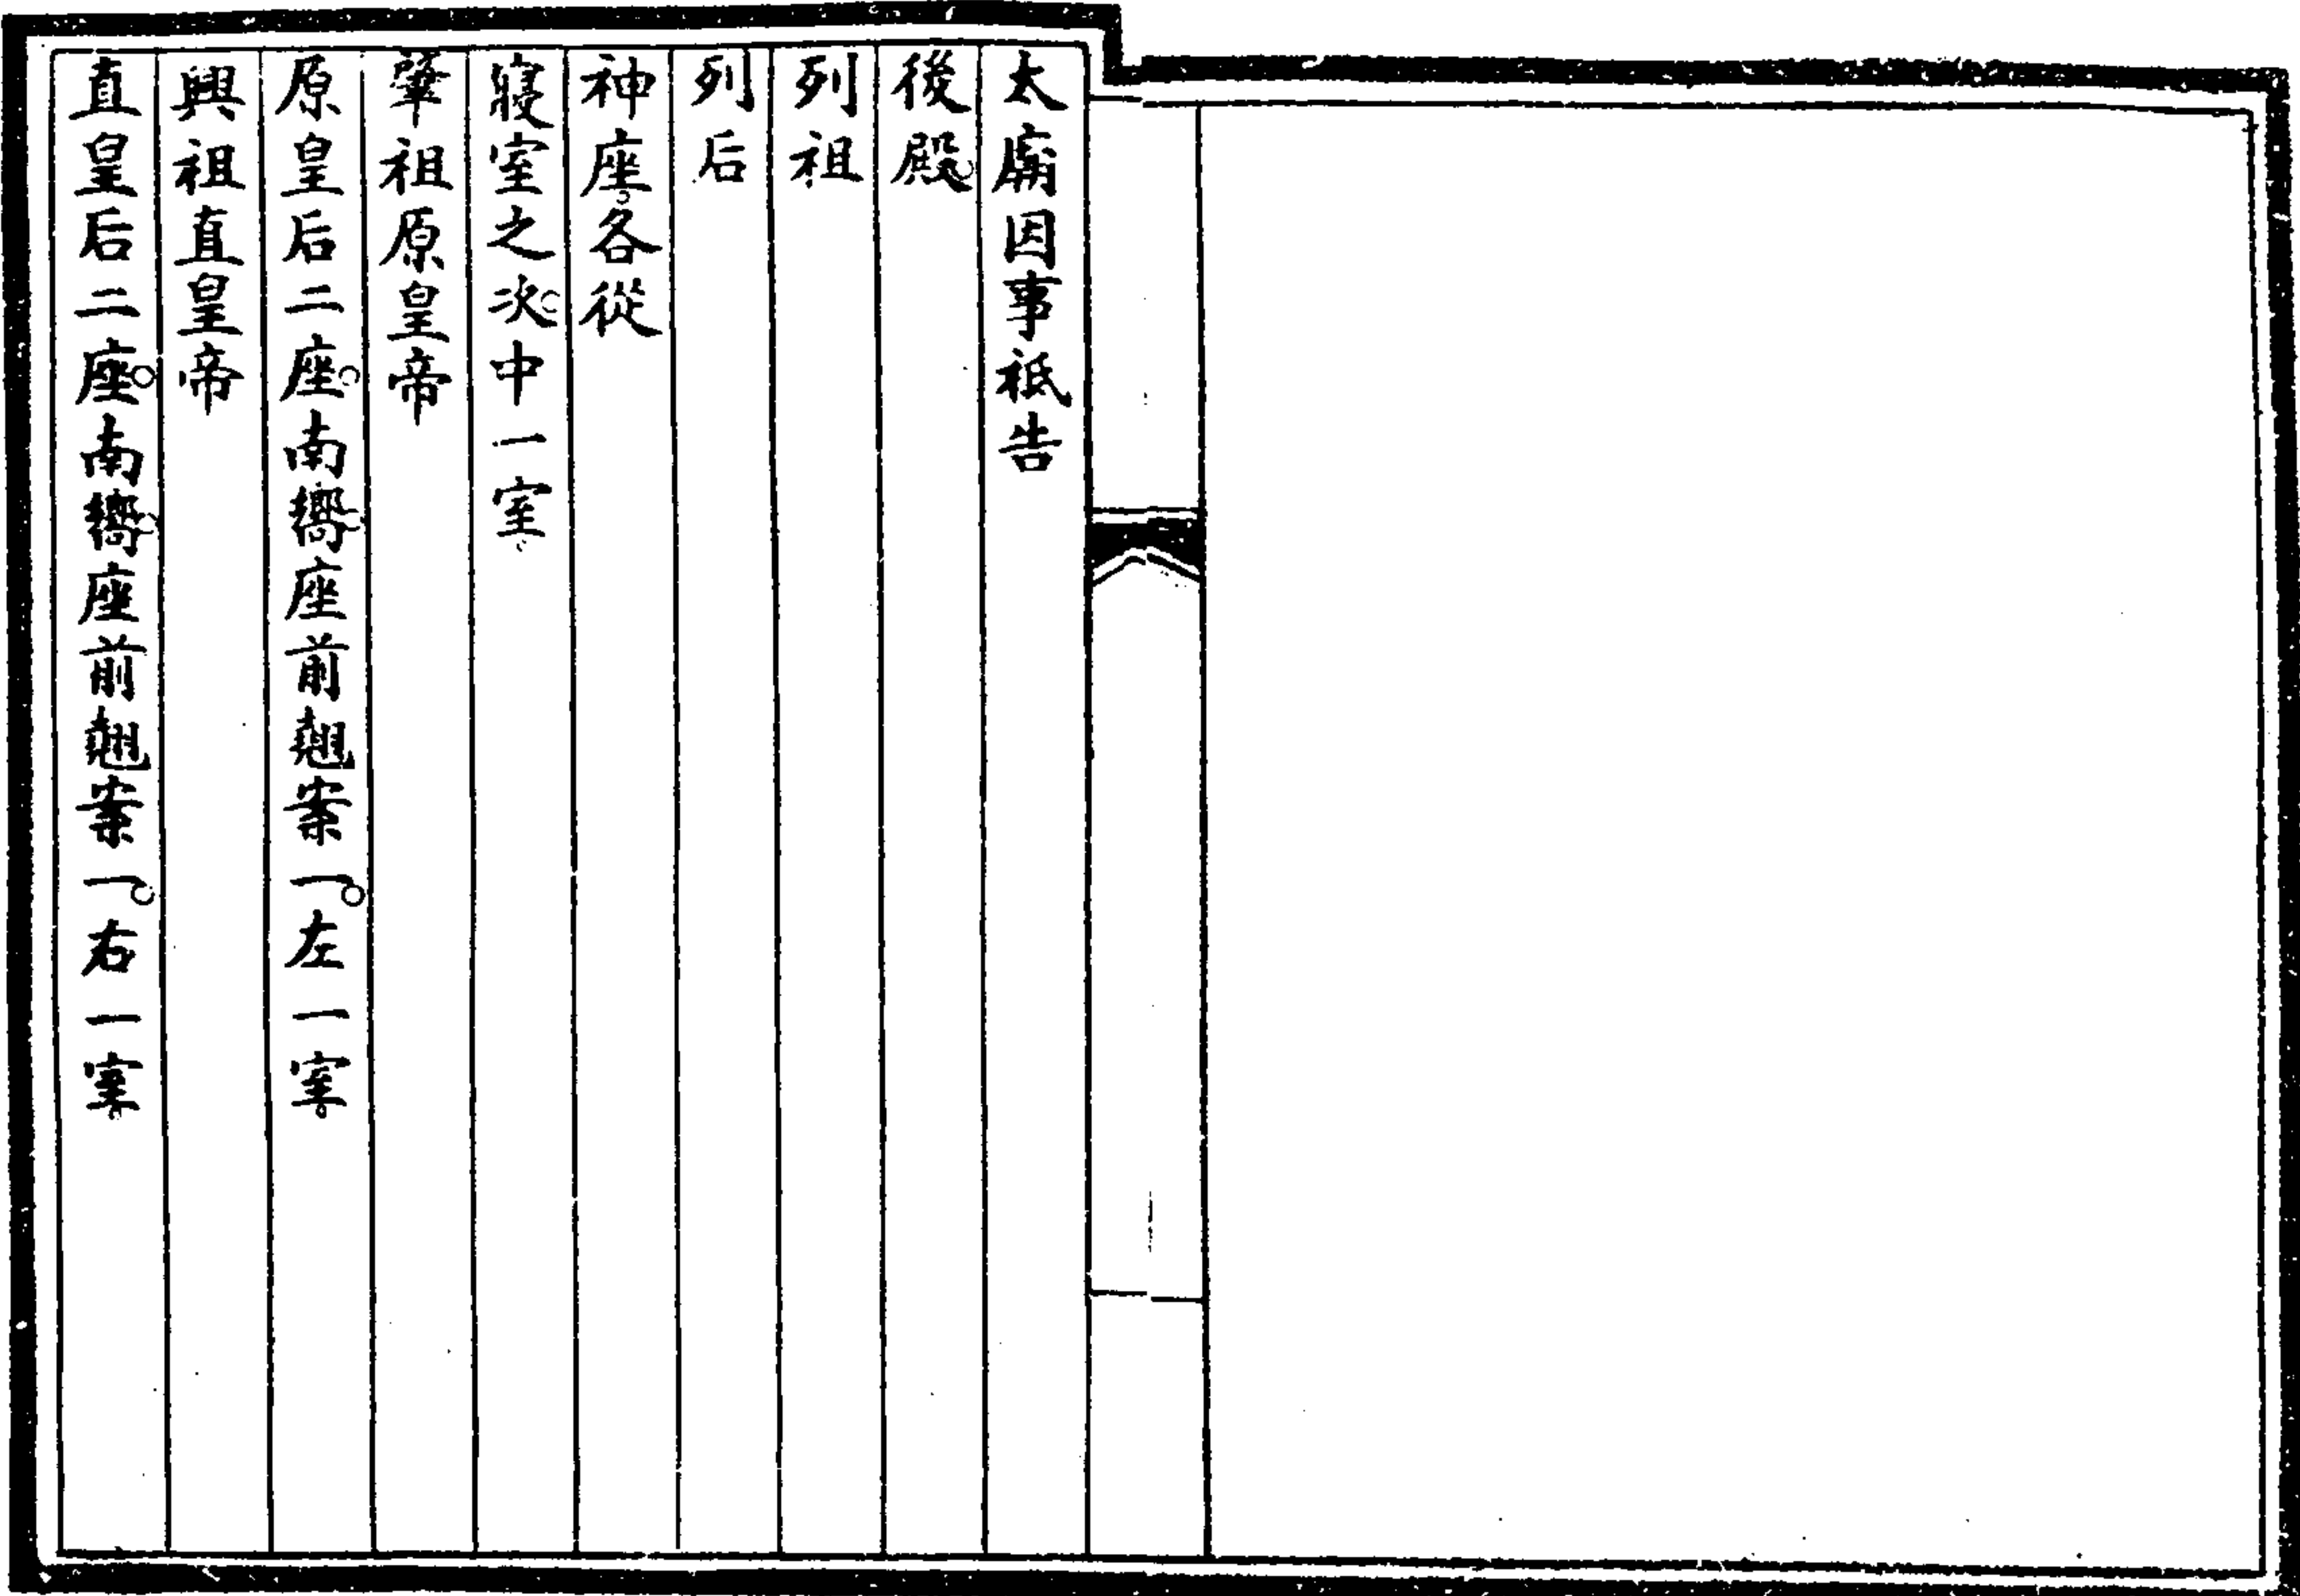 太廟因事祗告
後殿。
列祖
列后
神座。各從
寢室之次。中一室。
肇祖原皇帝
原皇后二座。南嚮。座前翹案一。左一室。
興祖直皇帝
直皇后二座。南嚮。座前翹案一。右一室。